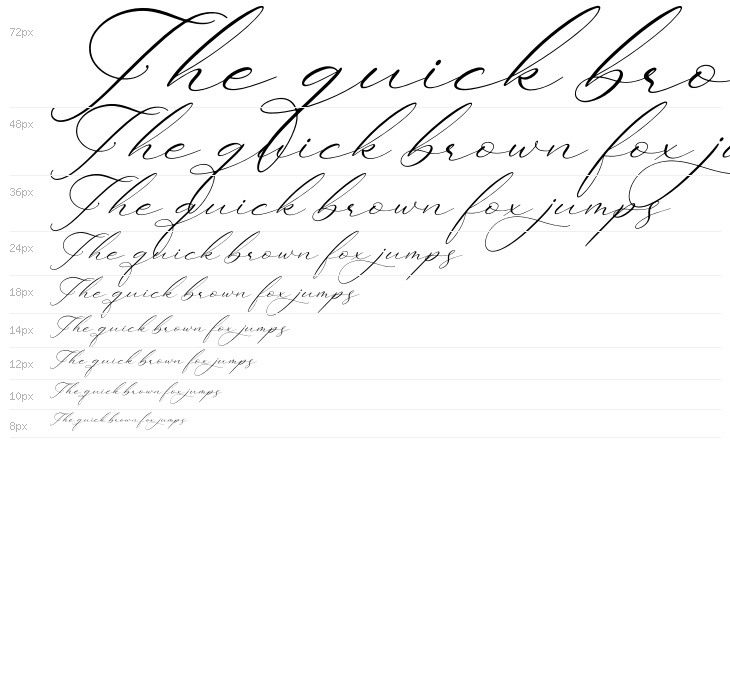 72px The quick bro
48px The quick brown fox ju
36px The quick brown fox jumps
24px The quick brown fox jumps
18px The quick brown fox jumps
14px The quick brown fox jumps
12px The quick brown fox jumps
10px The quick brown fox jumps
8px The quick brown fox jumps